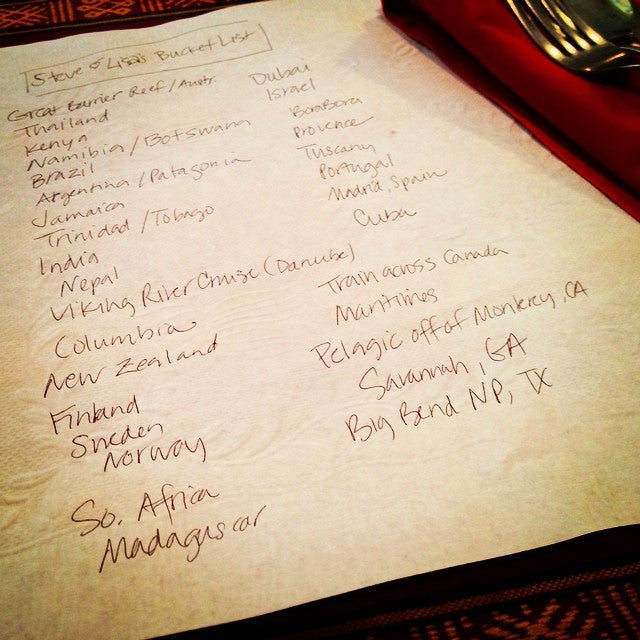 Steve & Lisa's Bucket List
Great Barrier Reef / Austr.
Thailand
Kenya
Namibia / Botswana
Brazil
Argentina / Patagonia
Jamaica
Trinidad / Tobago
India
Nepal
Viking River Cruise (Danube)
Columbia
New Zealand
Finland
Sweden
Norway
So. Africa
Madagascar
Dubai
Israel
Bora Bora
Provence
Tuscany
Portugal
Madrid, Spain
Cuba
Train across Canada
Maritimes
Pelagic off of Monterey, CA
Savannah, GA
Big Bend NP, TX